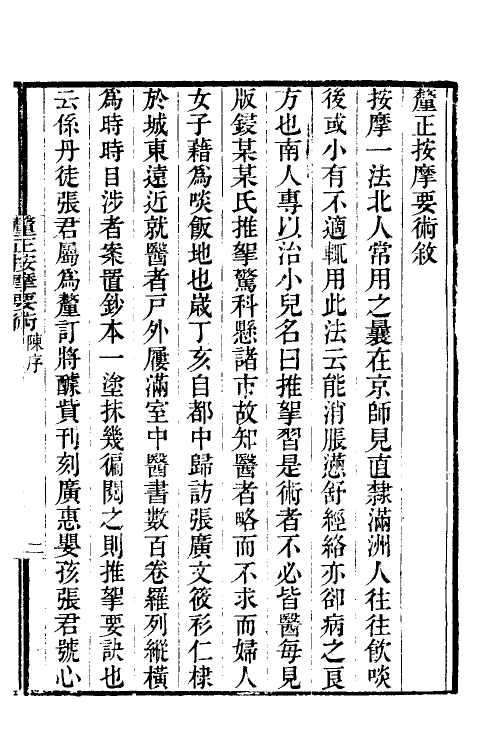 釐正按摩要術敘
按摩一法北人常用之曩在京師見直隸滿洲人往往飲啖
後或小有不適輒用此法云能消脹懣舒經絡亦卻病之良
方也南人專以治小兒名曰推拏習是術者不必皆醫每見
版鋟某某氏推拏驚科懸諸市故知醫者略而不求而婦人
女子藉爲啖飯地也歲丁亥自都中歸訪張廣文筱衫仁棣
於城東遠近就醫者戶外屨滿室中醫書數百卷羅列縱橫
爲時時目涉者案置鈔本一塗抹幾徧閱之則推拏要訣也
云係丹徒張君屬爲釐訂將醵貲刊刻廣惠嬰孩張君號心
釐正按摩要術
陳序
二